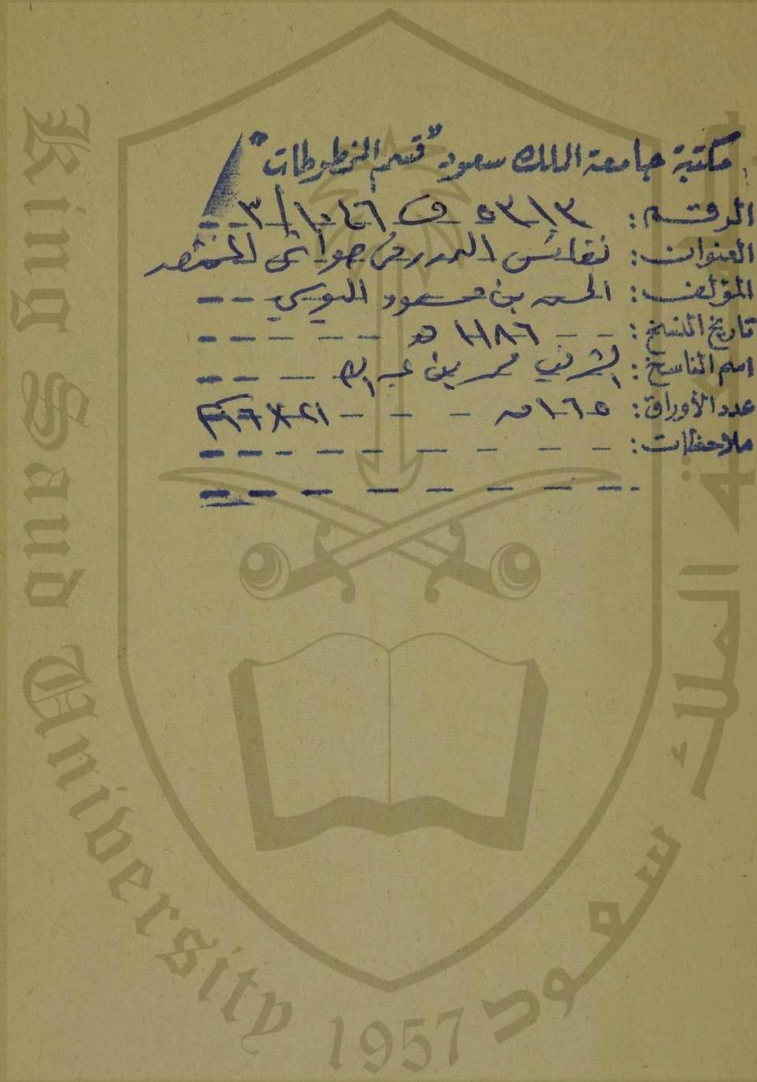 مكتبة جامعة الملك سعود "قسم المخطوطات"
الرقم: ٥٣١٣ ف ١٠٤٦ / ٣
العنوان: نفائس الدرر في حواشي المختصر
المؤلف: الحسن بن مسعود اليوسي
تاريخ النسخ: ١١٨٦ هـ
اسم الناسخ: الشريف محمد بن
عدد الأوراق: ١٦٥ ق
ملاحظات:
King Saud University 1957
جامعة الملك سعود